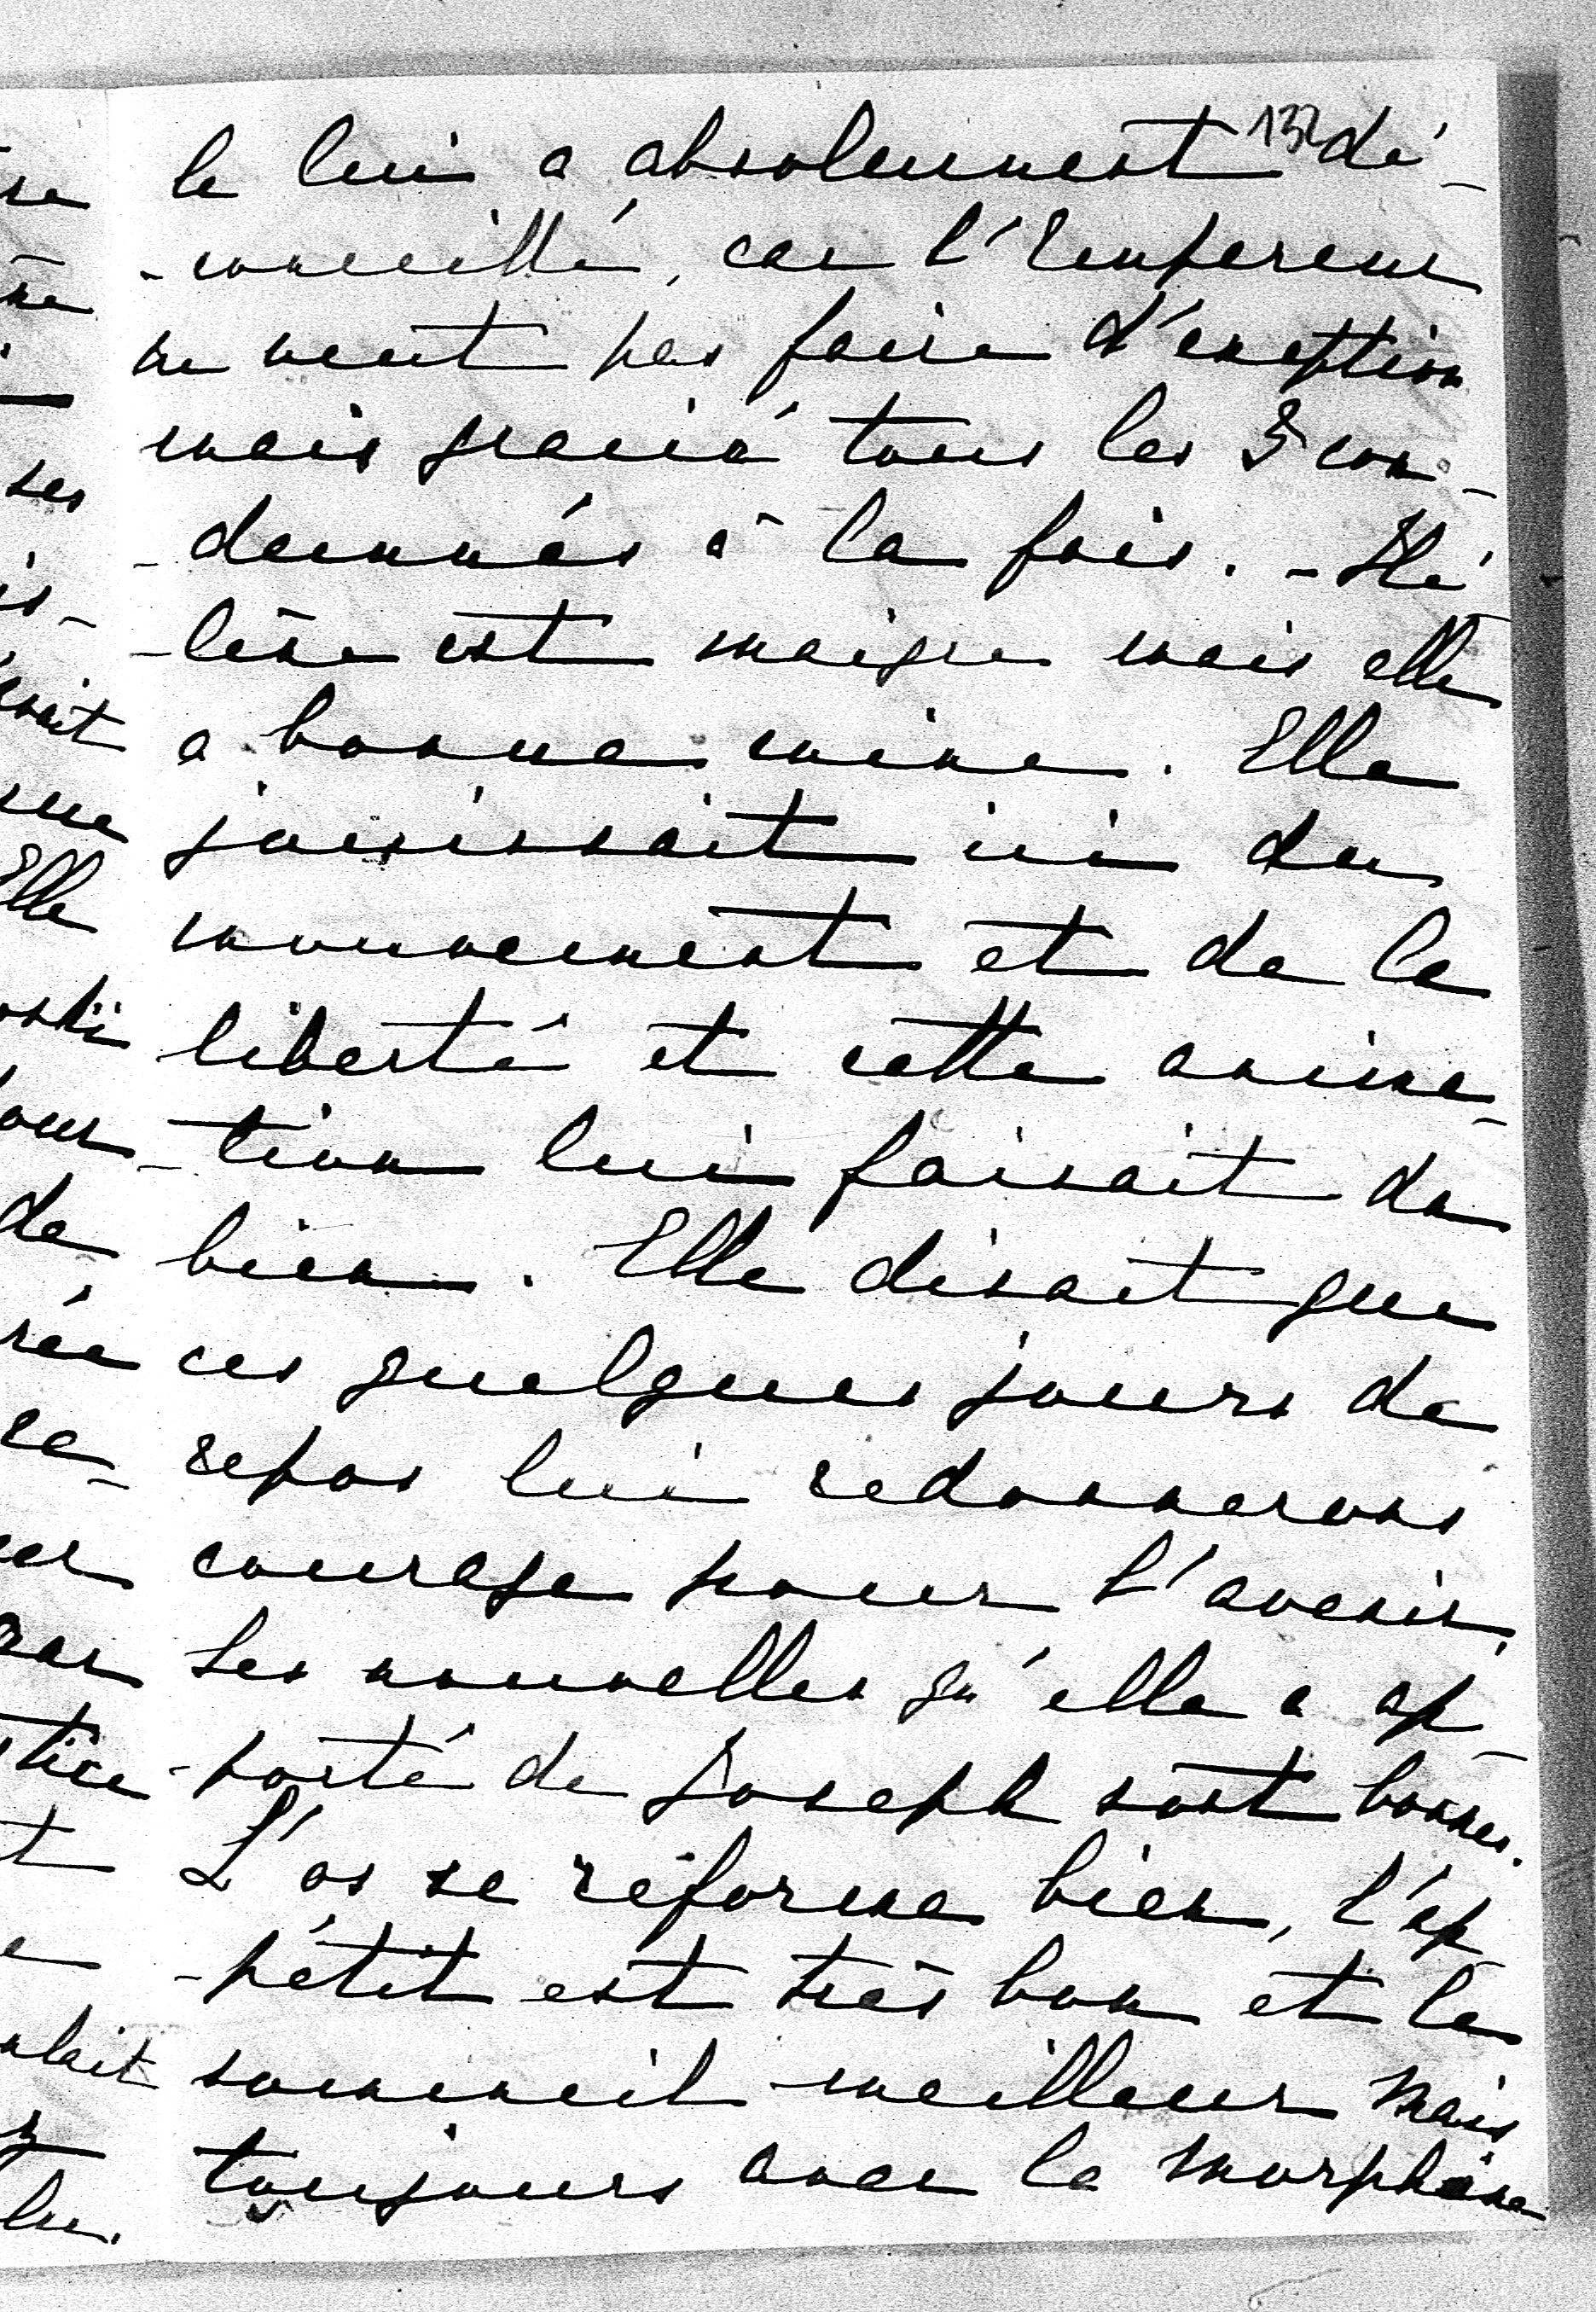 132
le lui a absolument dé-
-conseillé, car l'Empereur
ne veut pas faire d'exeption
mais graciè tous les 3 con-
-damnés à la fois. - Hé-
-lène est maigre mais elle
a bonne mine. Elle
jouissait ici du
mouvement et de la
liberté et cette anima-
-tion lui faisait du
bien. Elle disait que
ces quelques jours de
repos lui redonnerons
courage pour l'avenir.
Les nouvelles qu'elle a ap-
-porté de Joseph sont bonnes.
L'os se réforme bien, l'ap-
-pétit est très bon et le
sommeil meilleur mais
toujours avec la morphine